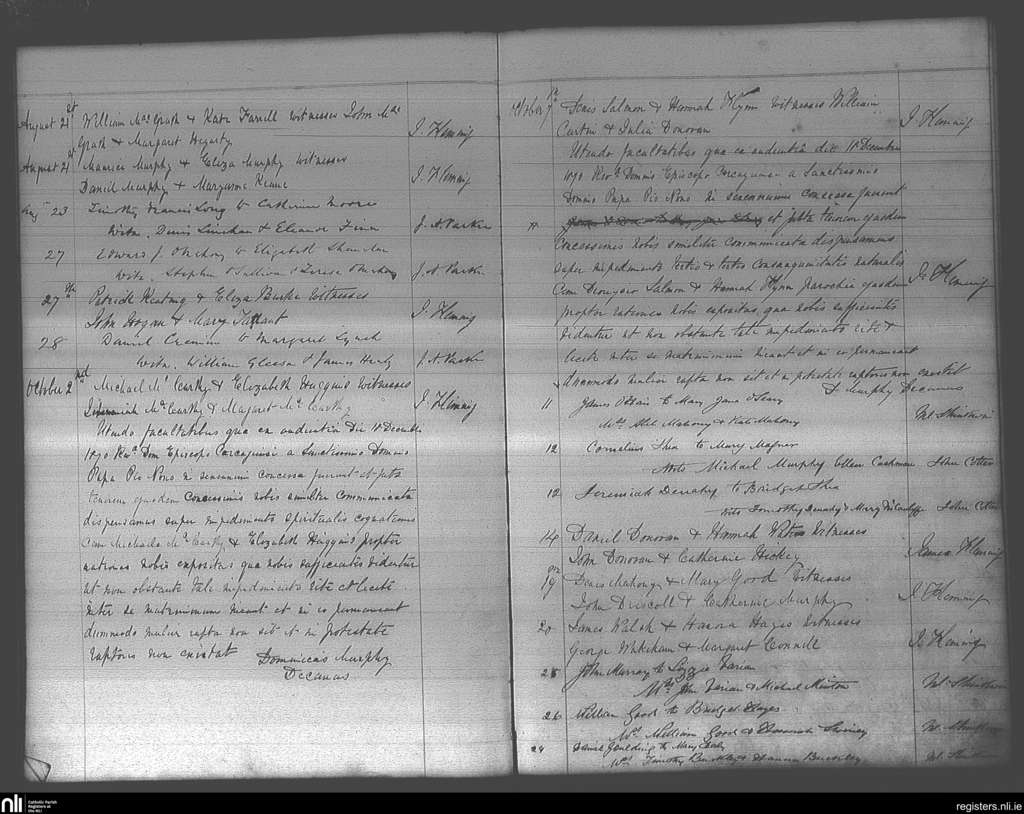 August 21st William McGrath & Kate Farrell witnesses John Mc
Grath & Margaret Hegarty J. Fleming
August 21st Maurice Murphy & Eliza Murphy witnesses
Daniel Murphy & J. Fleming
Aug 23 Timothy Francis Long to Catherine Moore
Witn. Denis Linehan & Eleanor Finn J. A. Parker
27 Edward J. to Elizabeth
Witn. Stephen O'Sullivan & Teresa J. A. Parker
27th Patrick Keating & Eliza Burke Witnesses
John Hogan & Mary Tarrant J. Fleming
28 Daniel Cremin to Margret Lynch
Witn. William Gleeson & James J. A. Parker
October 2nd Michael McCarthy & Elizabeth Huggins Witnesses
Jeremiah McCarthy & Margaret McCarthy J. Fleming
Utendo facultatibus qua ex audientia die 10 Decembris
1870 Revd. Dom Episcopo Corcagiensi a Sanctissimo Domino
Papa Pio Nono in concessa fuerunt et juxta
tenorem quasdem Concessionis nobis similiter Communicata
dispensamus super impedimento Spiritualis cognationis
cum Michaele McCarthy & Elizabeth Huggins propter
rationes nobis expositas qua nobis sufficientes videntur
ut non obstante tale impedimento rite et licite
inter se matrimonium ineant et in eo permaneant
dummodo mulier rapta non sit et in potestate
raptoris non existat Dominicus Murphy
Decanus
October 7th Denis Salmon & Hannah Flynn Witnesses William
Curtin & Julia Donovan J. Fleming
Utendo facultatibus qua ex audientia die 10 Decembris
1870 Revd. Domino Episcopo Corcagiensi a Sanctissimo
Domino Papa Pio Nono in concessa fuerunt
et juxta tenorem quasdem
Concessionis nobis similiter communicata dispensamus
super impedimento tertio & tertio Consanguinitatis naturalis
cum Dionysio Salmon & Hannah Flynn parochia J. Fleming
propter rationes nobis expositas, qua nobis sufficientes
videntur ut non obstante tale impedimento rite &
licite inter se matrimonium ineant et in eo permaneant
dummodo mulier rapta non sit et in potestate raptoris non existat
D Murphy Decanus
11 James to Mary Jane O'Leary
Mahony & Kate Mahony
12 Cornelius Shea to Mary Magner
Witn Michael Murphy Ellen Cashman John Cotter
12 Jeremiah Denehy to Bridget Shea
Witn Timothy Denehy & Mary John Cotter
14 Daniel Donovan & Hannah Witnesses
John Donovan & Catherine Hickey James Fleming
on 19 Denis Mahony & Mary Good Witnesses
John Driscoll & Catherine Murphy J. Fleming
20 James Walsh & Hanora Hayes Witnesses
George Wakeham & Margaret Connell J. Fleming
25 John Murray to Lizzie Varian
Wits John Varian & Michael
26 William Good to Bridget Hayes
Ws William Good & Hannah
29 Daniel Goulding to Mary
Ws Timothy Buckley & Hanna Buckley
nli Catholic Parish
Registers at
the NLI
registers.nli.ie